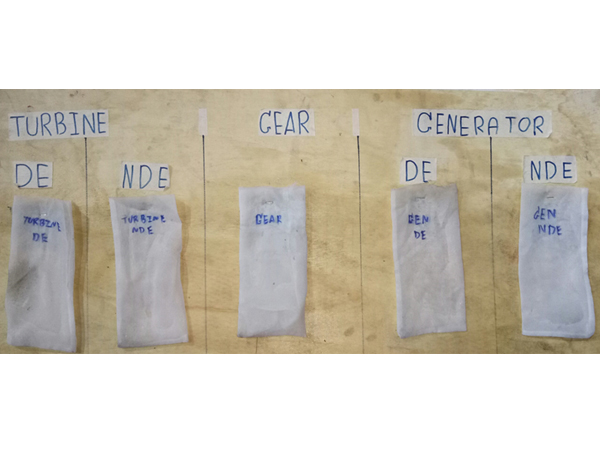 TURBINE
GEAR
GENERATOR
DE
NDE
DE
NDE
TURBINE
DE
TURBINE
NDE
GEAR
GEN
DE
GEN
NDE